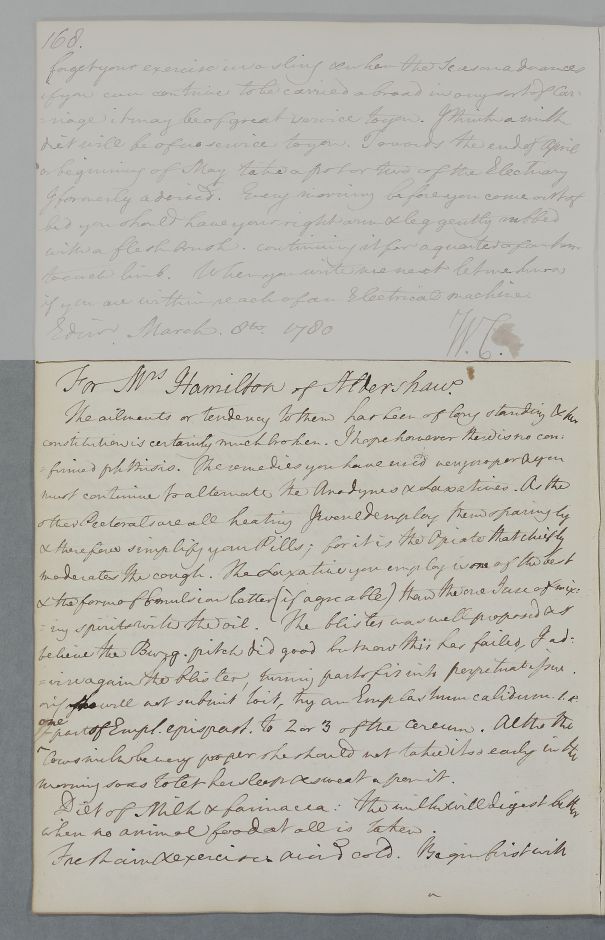 168.
forget your exercise in a sling & when the Season advances
if you can continue to be carried abroad in any sort of Car-
=riage it may be of great service to you. I think a milk
diet will be of no service to you. Towards the end of April
or beginning of May take a pot or two of the Electuary
I formerly advised. Every morning before you come out of
bed you should have your right arm & leg gently rubbed
with a flesh brush continuing it for a quarter of an hour
to each limb. When you write me next let me know
if you are within reach of an Electrical machine.
Edinr. March. 8th 1780 W.C.
For Mrs Hamilton of Aldershaw.
The ailments or tendency to them has been of long standing & her
constitution is certainly much broken. I hope however there is no con-
=firmed phthisis. The remedies you have us'd very proper & you
must continue to alternate the Anodynes & Laxatives. As the
other Pectorals are all heating I would employ them sparingly
& therefore simplify your Pills; for it is the Opiate that chiefly
moderates the cough. The Laxative you employ is one of the best
& the form of Emulsion better (if agreeable) than the one I use of mix-
=ing spirits with the oil. The blister was well proposed & I
believe the Burg. pitch did good but now this has failed, I ad-
=vise again the blister, turning part of it into perpetual issue.
or if she will not submit to it, try an Emplastrum calidum. i.e.
one part of Empl. epispast. to 2 or 3 of the cereum. Altho the
Cows milk be very proper she should not take it so early in the
morning so as to let her sleep & sweat upon it.
Diet of Milk & farinacea: the milk will digest better
when no animal food at all is taken.
Fresh air & exercise. avoid cold. Begin first with